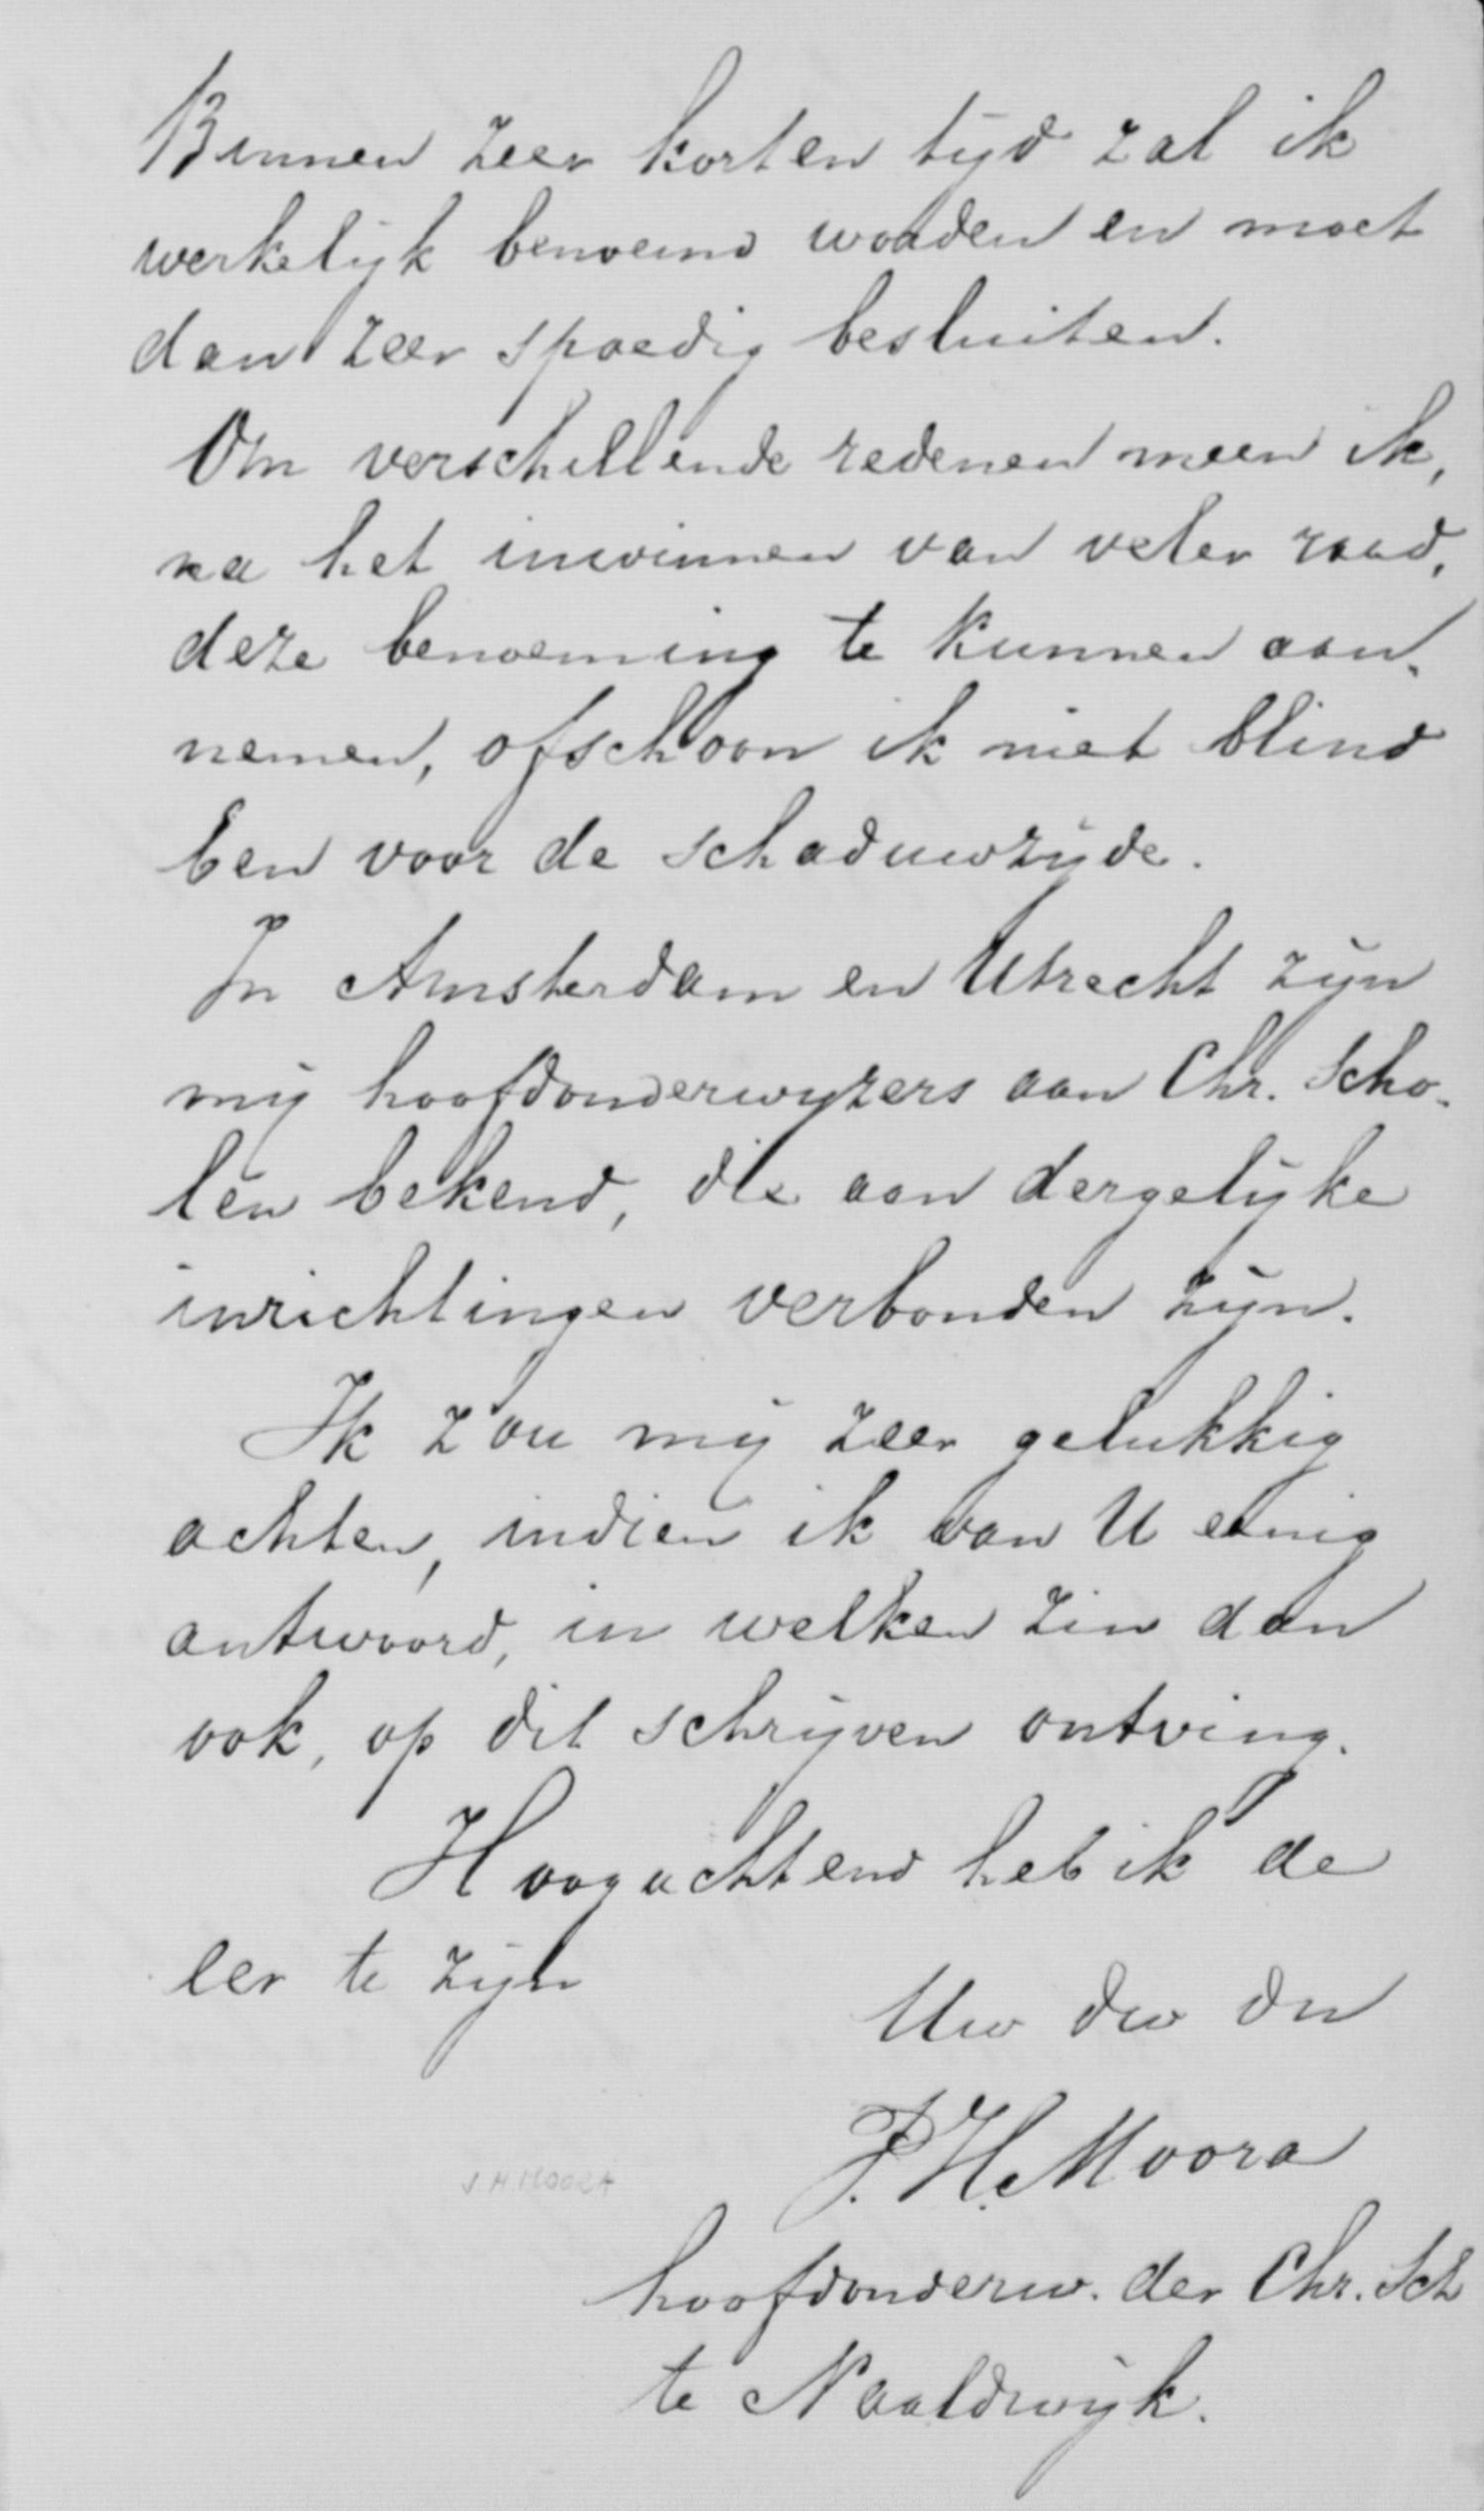 Binnen zeer korten tijd zal ik
werkelijk benoemd worden en moet
dan zeer spoedig besluiten.
Om verschillende redenen meen ik,
na het inwinnen van veler raad,
deze benoeming te kunnen aan-
nemen, ofschoon ik niet blind
ben voor de schaduwzijde.
In Amsterdam en Utrecht zijn
mij hoofdonderwijzers aan Chr. Scho-
len bekend, die aan dergelijke
inrichtingen verbonden zijn.
Ik zou mij zeer gelukkig
achten, indien ik van U eenig
antwoord, in welken zin dan
ook, op dit schrijven ontving.
Hoogachtend heb ik de
eer te zijn
Uw dw dn
J. H. Moora
J. H. MOORA
hoofdonderw. der Chr. Sch
te Naaldwijk.